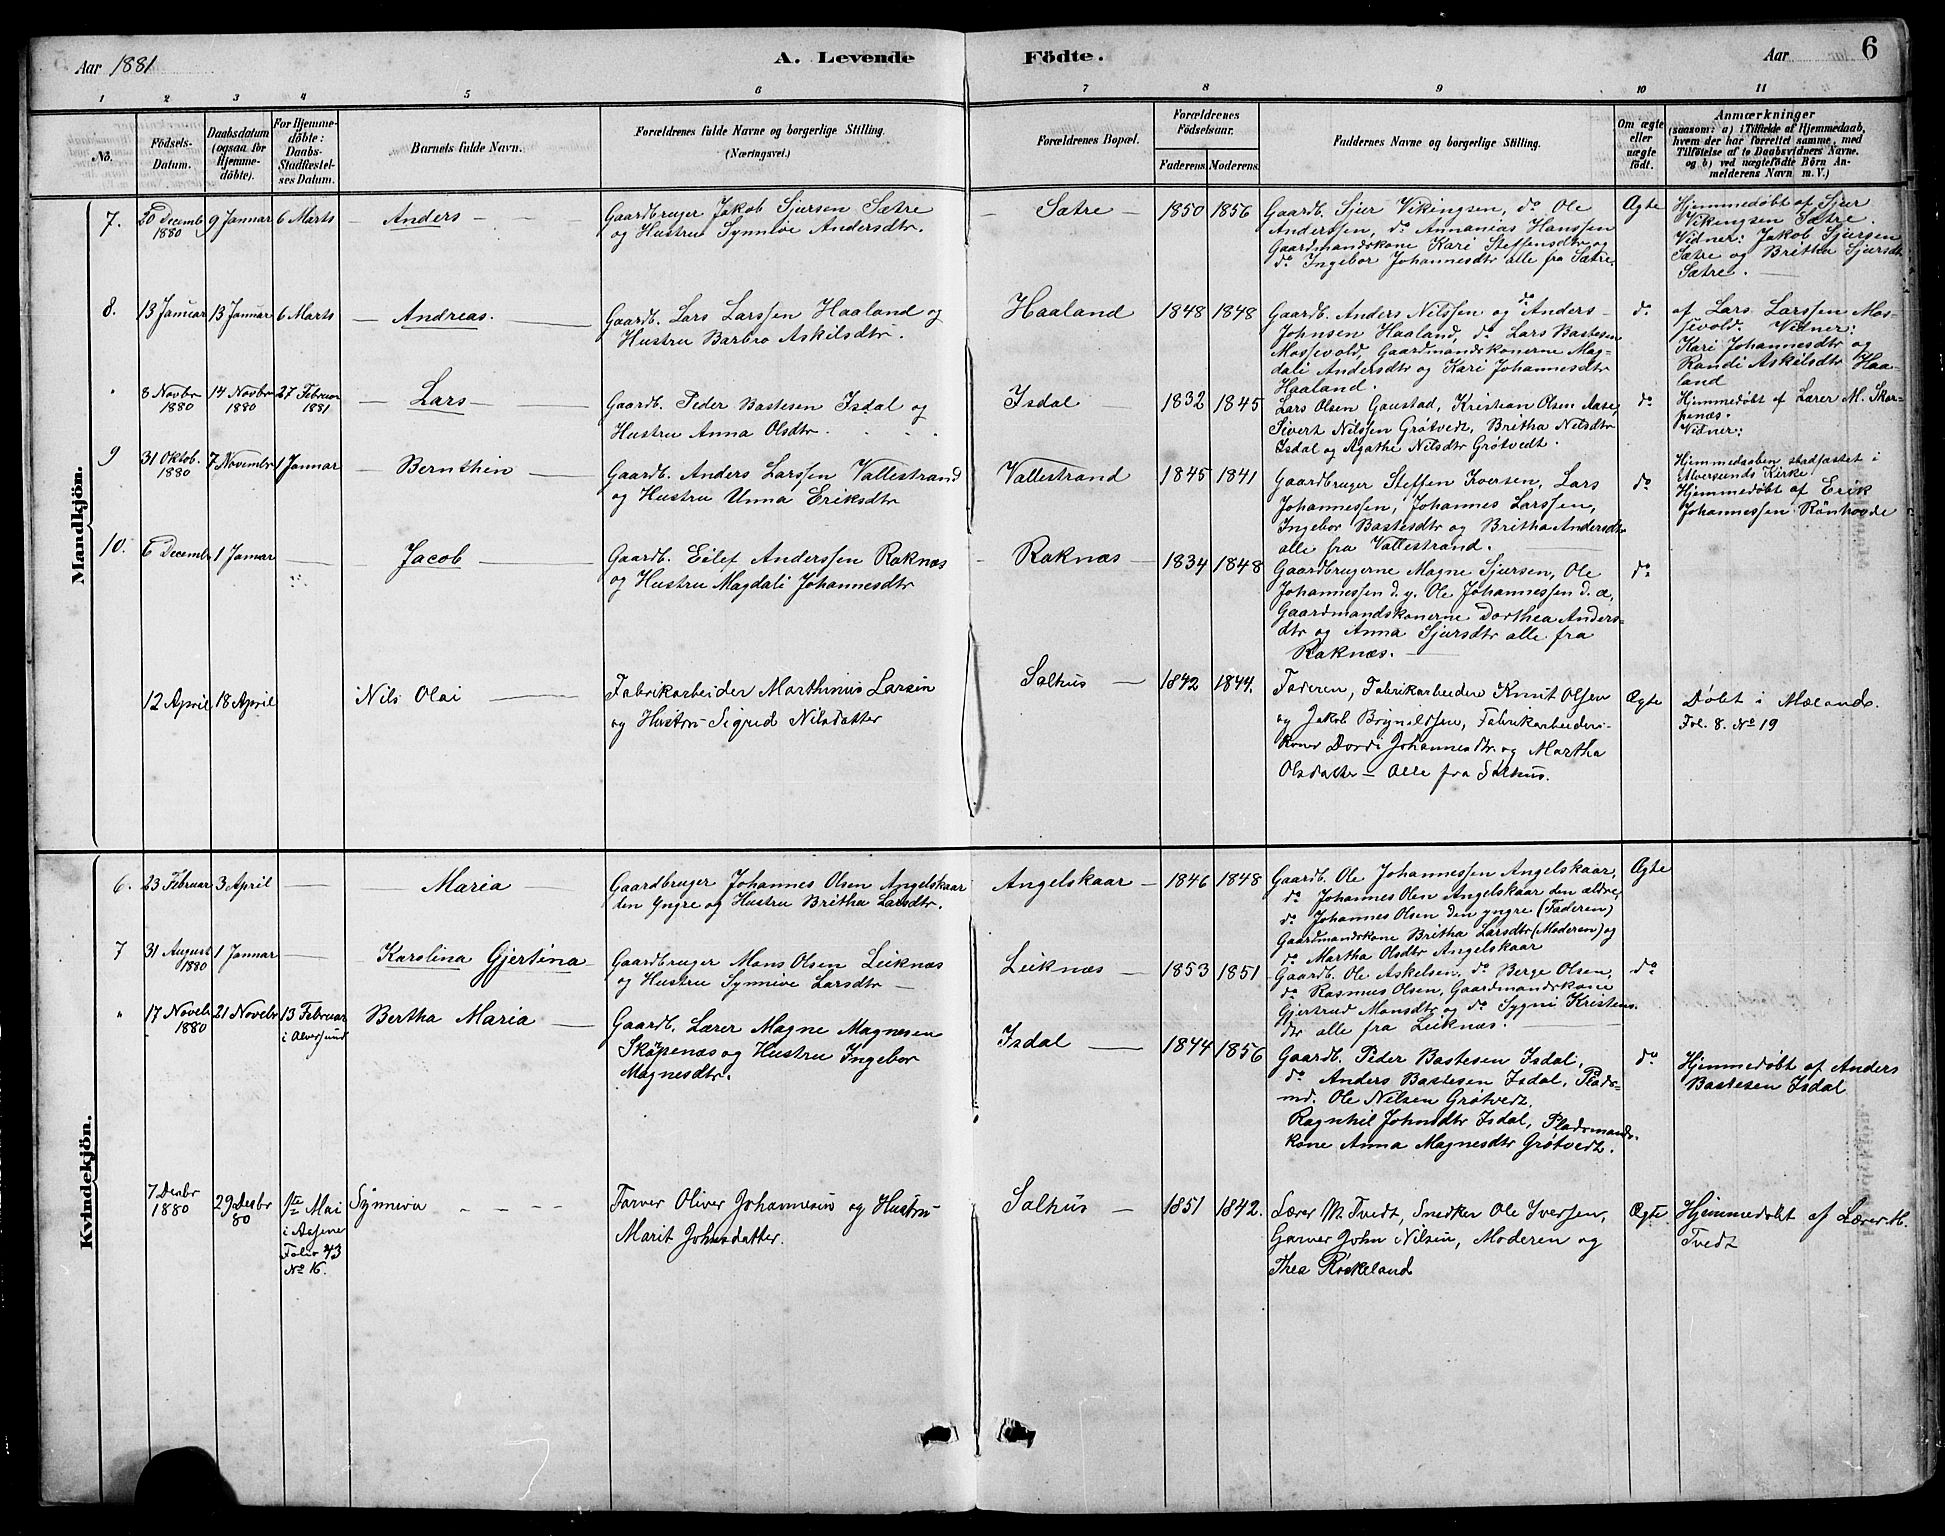 Aar 1881
A. Levende Födte.
Aar
6
1 2 3 4 5 6 7 8 9 10 11
No.
Födsels-
Datum.
Daabsdatum
(ogsaa for
Hjemme-
döbte).
For Hjemme-
döbte:
Daabs-
Stadfæstel-
ses Datum.
Barnets fulde Navn.
Forældrenes fulde Navne og borgerlige Stilling.
(Næringsvei.)
Forældrenes Bopæl.
Forældrenes
Födselsaar.
Faderens. Moderens.
Faddernes Navne og borgerlige Stilling.
Om ægte
eller
uægte
födt.
Anmærkninger
(saasom: a) i Tilfælde af Hjemmedaab,
hvem der har forrettet samme, med
Tilföielse af to Daabsvidners Navne,
og b) ved uægtefödte Börn An-
melderens Navn m. V.)
Mandkjön.
7.
30 Decemb
1880
9 Januar
6 Marts
Anders
Gaardbruger Jakob Sjursen Sætre
og Hustru Synnive Andersdtr.
Sætre
1850
1856
Gaardb. Sjur Vikingsen, do Ole
Anderssen, do Annanias Hanssen
Gaardmandskone Kari Steffensdtr og
do Ingebor Johannesdtr alle fra Sætre.
Ægte
Hjemmedøbt af Sjur
Vikingsen Sætre.
Vidner: Jakob Sjursen
Sætre og Britha Sjursdtr
Sætre.
8.
13 Januar
13 Januar
6 Marts
Andreas.
Gaardb. Lars Larssen Haaland og
Hustru Barbro Askilsdtr.
Haaland
1848
1848
Gaardb. Anders Nilssen og do Anders
Johnsen Haaland, do Lars Bastesen
Mossevold, Gaardmandskonerne Mag-
dali Andersdtr og Kari Johannesdtr
Haaland.
do
af Lars Larssen Mos-
sevold. Vidner:
Kari Johannesdtr og
Randi Askilsdtr Haa-
land
"
8 Novbr
1880
14 Novbr
1880
27 Februar
1881
Lars
Gaardb. Peder Bastesen Isdal og
Hustru Anna Olsdtr.
Isdal
1832
1845
Lars Olsen Gaustad, Kristian Olsen Aase,
Sivert Nilssen Grötvedt, Britha Nilsdtr
Isdal og Agathe Nilsdtr Grötvedt.
do
Hjemmedøbt af Lærer M. Skor-
penæs.
Vidner:
9
31 Oktob.
1880
7 Novembr
1 Januar
Bernthin
Gaardb. Anders Larssen Vallestrand
og Hustru Unna Eriksdtr
Vallestrand
1845
1841
Gaardbruger Steffen Iversen, Lars
Johannessen, Johannes Larssen,
Ingebor Bastesdtr og Britha Andersdtr
alle fra Vallestrand.
do
Hjemmedaaben stadfæstet i
Alversunds Kirke
Hjemmedøbt af Erik
Johannessen Rönhovde
10.
6 Decembr
1 Januar
Jacob
Gaardb. Eilef Anderssen Raknæs
og Hustru Magdali Johannesdtr
Raknæs
1834
1848
Gaardbrugerne Magne Sjursen, Ole
Johannessen d. y. Ole Johannessen d. æ,
Gaardmandskonerne Dorthea Anders-
dtr og Anna Sjursdtr alle fra
Raknæs.
do
12 April
18 April
Nils Olai
Fabrikarbeider Marthinius Larsen
og Hustru Sigrid Nilsdatter
Salhus
1842
1844.
Faderen, Fabrikarbeider Knut Olsen
og Jakob Brynildsen, Fabrikarbeider-
koner Dordi Johannesdtr og Martha
Olsdatter – alle fra Salhus.
Ægte
Døbt i Mæland.
Fol. 8. No 19
Kvindekjön.
6.
23 Februar
3 April
Maria
Gaardbruger Johannes Olsen Angelskaar
den Yngre og Hustru Britha Larsdtr.
Angelskaar
1846
1848
Gaardb. Ole Johannessen Angelskaar,
do Johannes Olen Angelskaar den ældre,
do Johannes Olsen den yngre (Faderen)
Gaardmandskone Britha Larsdtr (Moderen) og
do Martha Olsdtr Angelskaar
Ægte
7
31 August
1880
1 Januar
Karolina Gjertina
Gaardbruger Mons Olsen Leiknæs
og Hustru Synnive Larsdtr
Leiknæs
1853
1851
Gaardb. Ole Askelsen, do Berge Olsen,
do Rasmus Olsen, Gaardmandskone
Gjertrud Monsdtr og do Sygni Kristens-
dtr alle fra Leiknæs.
do
"
17 Novbr
1880
21 Novebr
13 Februar
i Alversund
Bertha Maria
Gaardb. Lærer Magne Magnesen
Sköpenæs og Hustru Ingebor
Magnesdtr.
Isdal
1844
1856
Gaardb. Peder Bastesen Isdal,
do Anders Bastesen Isdal, Plads-
md. Ole Nelsen Grötvedt.
Ragnhil Johnsdtr Isdal, Pladsmands-
kone Anna Magnesdtr Grötvedt.
do
Hjemmedøbt af Anders
Bastesen Isdal
7 Desbr
1880
29 Desbr
80
1ste Mai
i Aasene
Folio 43
No 16.
Synneva
Farver Oliver Johannesen og Hustru
Marit Johnsdatter.
Salhus
1851
1842.
Lærer M. Tvedt, Snedker Ole Iversen,
Garver John Nilsen, Moderen og
Thea Röskeland
Ægte.
Hjemmedøbt af Lærer M.
Tvedt